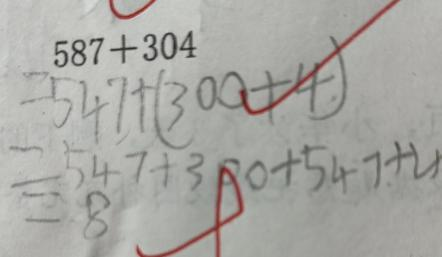 587+304
=547+(300+4)
=547+300+547+4
=8